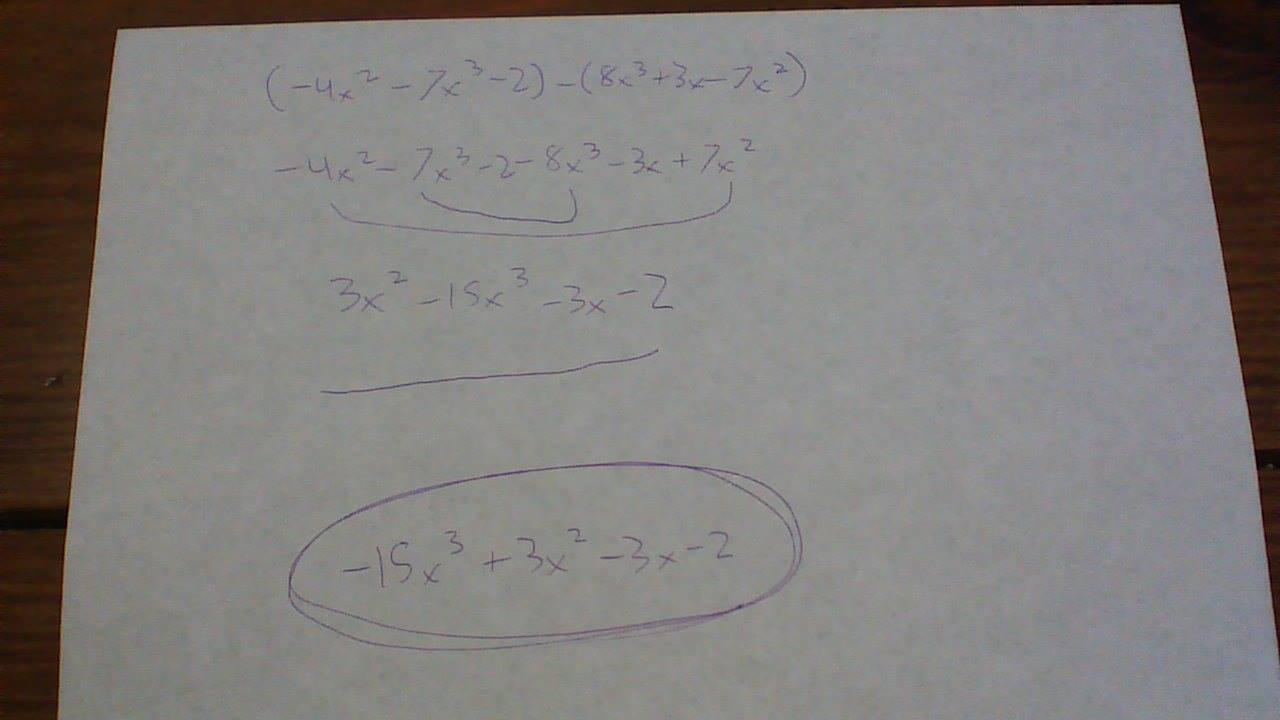 (-4x² - 7x³ - 2) - (8x³ + 3x - 7x²)
-4x² - 7x³ - 2 - 8x³ - 3x + 7x²
3x² - 15x³ - 3x - 2
-15x³ + 3x² - 3x - 2